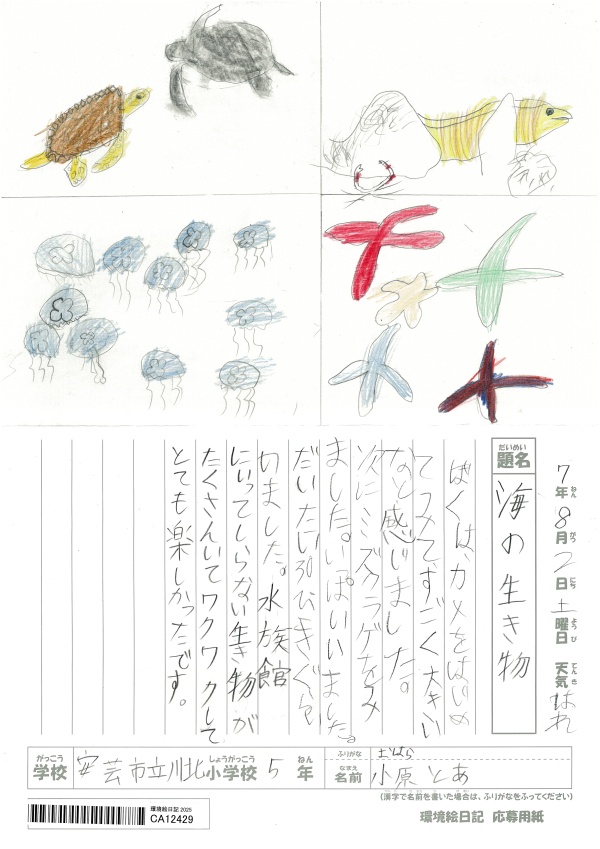 7年8月2日土曜日 天気はれ
ねん がつ にち ようび てんき
だいめい
題名 海の生き物
ぼくは、カメをはじめ
てみて、すごく大きい
なと感じました。
次にミズクラゲをみ
ました。いぱいいました。
だいたい30ひきぐらい
いました。水族館
にいってしらない生き物が
たくさんいてワクワクして
とても楽しかったです。
がっこう しょうがっこう ねん
学校 安芸市立川北小学校 5年
ふりがな おはら
なまえ
名前 小原とあ
(漢字で名前を書いた場合は、ふりがなをふってください)
環境絵日記 2025
CA12429
環境絵日記 応募用紙